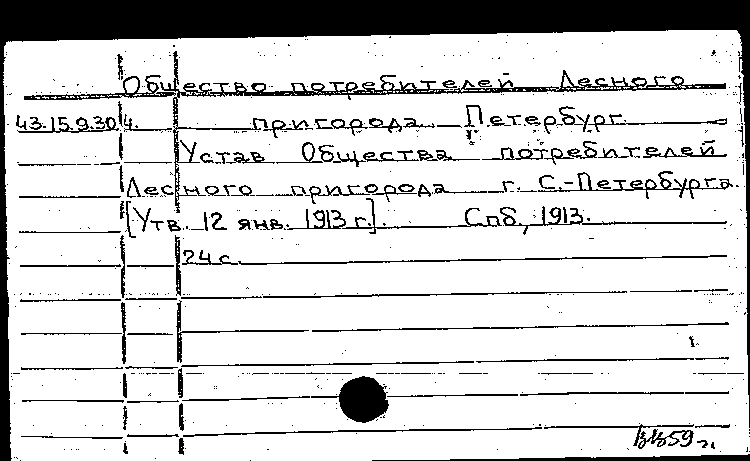 Общество потребителей Лесного
43.15.9.304. пригорода Петербург
Устав Общества потребителей
Лесного пригорода г. С.-Петербурга.
[Утв. 12 янв. 1913 г.]. Спб, 1913.
24 с.